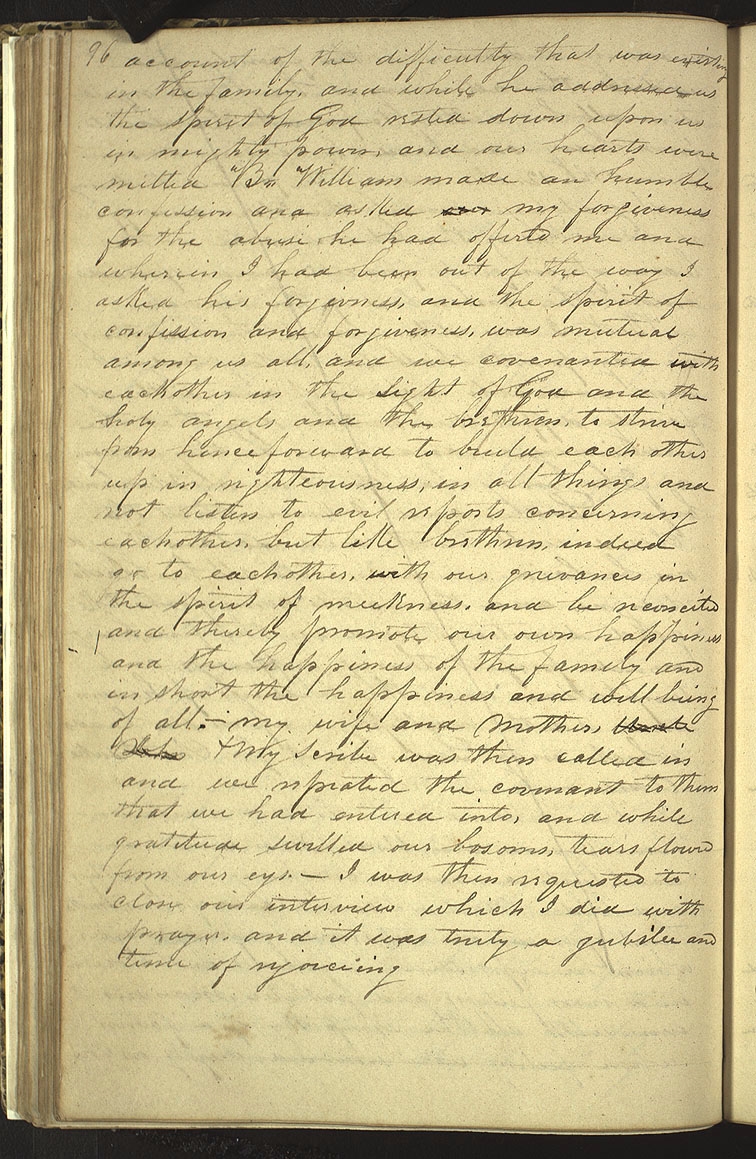 96 account of the difficulty that was existing
in the family, and while he addressed us
the spirit of God rested down upon us
in mighty power, and our hearts were
melted "Br" William made an humble
confession and asked my forgiveness
for the abuse he had offered me and
wherein I had been out of the way I
asked his forgivness, and the spirit of
confission and forgiveness, was mutual
among us all, and we covenanted with
eachother in the sight of God and the
holy angels and the brethren, to strive
from henceforward to build each other
up in righteousness, in all things and
not listen to evil reports concerning
eachother, but like brethren, indeed
go to eachother, with our grievances in
the spirit of meekness, and be reconciled
and thereby promote our own happiness
and the happiness of the family and
in short the happiness and well being
of all.— my wife and mother,
& my scribe was then called in
and we repeated the covenant to them
that we had entered into, and while
gratitude swelled our bosoms, tears flowed
from our eys.— I was then requested to
close our interview which I did with
prayer, and it was truly a jubilee and
time of rejoiceing